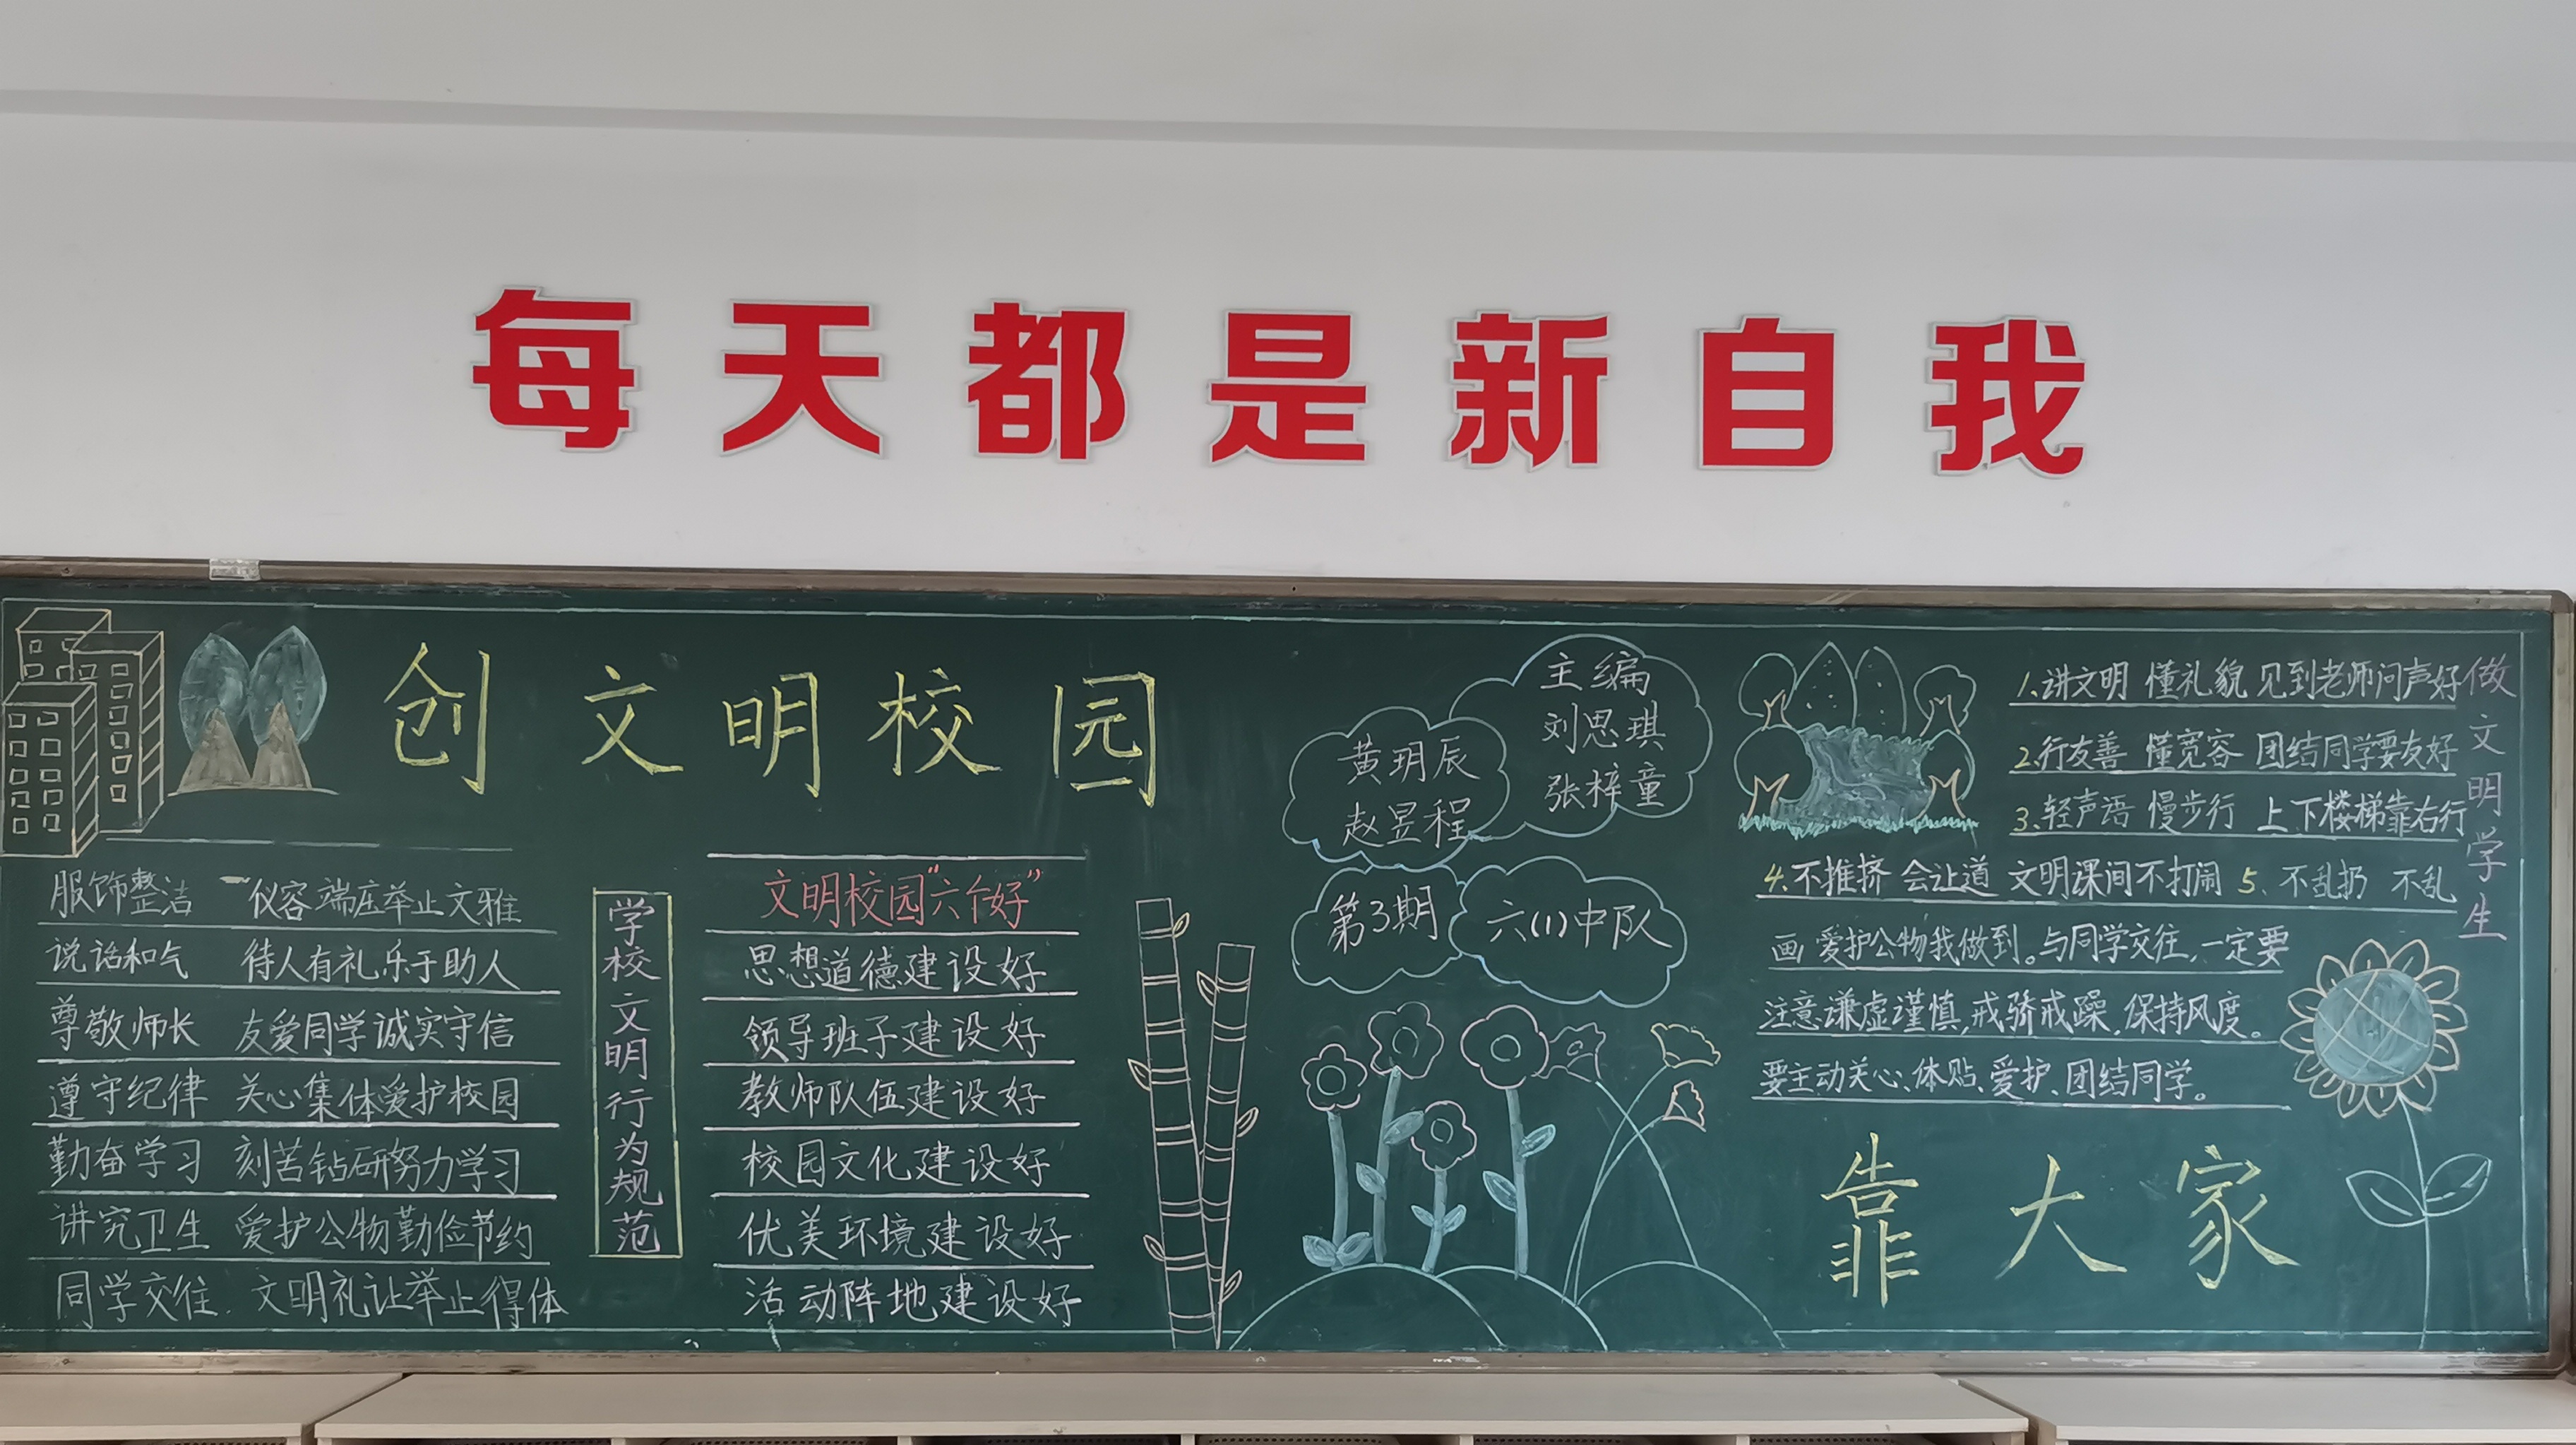 每天都是新自我
创文明校园
服饰整洁 仪容端庄举止文雅
说话和气 待人有礼乐于助人
尊敬师长 友爱同学诚实守信
遵守纪律 关心集体爱护校园
勤奋学习 刻苦钻研努力学习
讲究卫生 爱护公物勤俭节约
同学交往. 文明礼让举止得体
学校文明行为规范
文明校园“六个好”
思想道德建设好
领导班子建设好
教师队伍建设好
校园文化建设好
优美环境建设好
活动阵地建设好
主编
刘思琪
张梓童
黄玥辰
赵昱程
第3期
六(1)中队
做文明学生
1.讲文明 懂礼貌 见到老师问声好
2.行友善 懂宽容 团结同学要友好
3.轻声语 慢步行 上下楼梯靠右行
4.不推挤 会让道 文明课间不打闹 5.不乱扔 不乱
画 爱护公物我做到。与同学交往,一定要
注意谦虚谨慎,戒骄戒躁,保持风度。
要主动关心、体贴、爱护、团结同学。
靠大家